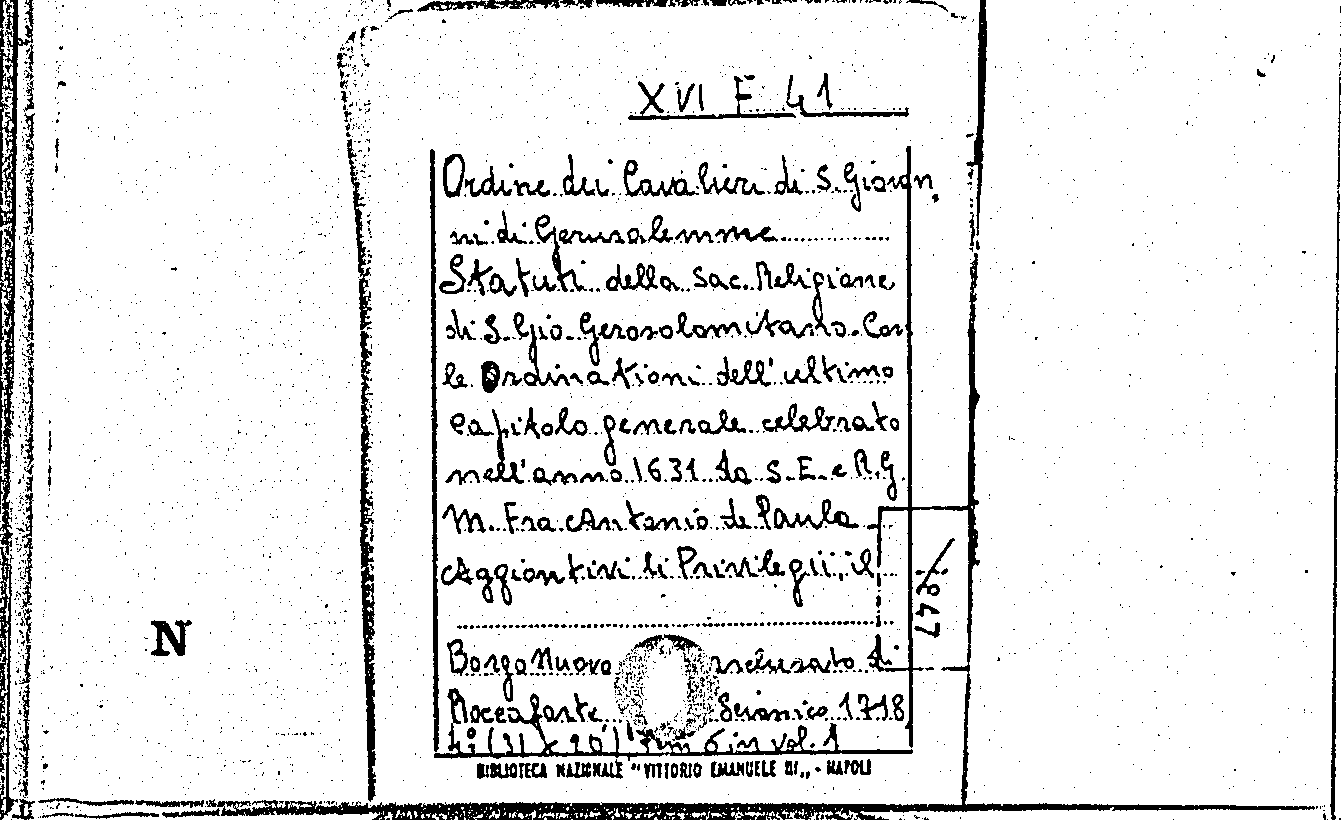 XVI F 41
Ordine dei Cavalieri di S. Giovan
ni di Gerusalemme
Statuti della Sac. Religione
di S. Gio. Gerosolomitano. Con
le Ordinationi dell' ultimo
Capitolo generale celebrato
nell'anno 1631 da S. E. e R. G.
M. Fra Antonio de Paula
Aggiontivi li Privilegii, il
Borgo Nuovo di
Roccaforte Scionico 1718
4° (31 x 20) 6 in vol. 1
BIBLIOTECA NAZIONALE "VITTORIO EMANUELE III,, - NAPOLI
N
947